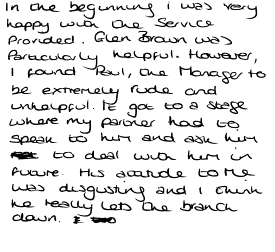 In the beginning I was very
happy with the service
Provided. Glen Brown was
Particularly helpful. However,
I found Paul, the Manager to
be extremely rude and
unhelpful. It got to a stage
where my partner had to
speak to him and ask him
to deal with him in
future. His attitude to me
was disgusting and I think
he really lets the branch
down.